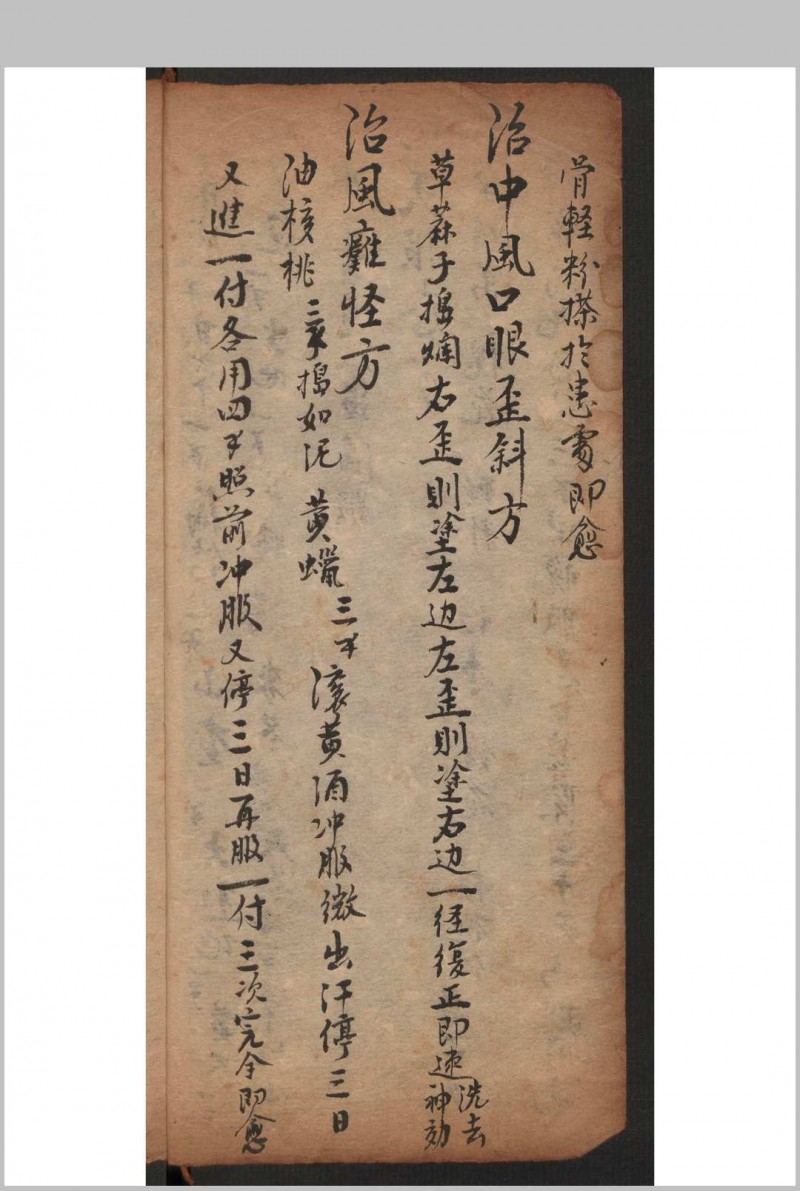 骨軽粉搽於患處即愈
治中風口眼歪斜方
草蔴子搗爛右歪則塗左边左歪則塗右边一径復正即速洗去神効
治風癱怪方
油核桃三個搗如泥黄蠟三个滚黄酒冲服微出汗停三日
又進一付各用四个照前冲服又停三日再服一付三次完全即愈